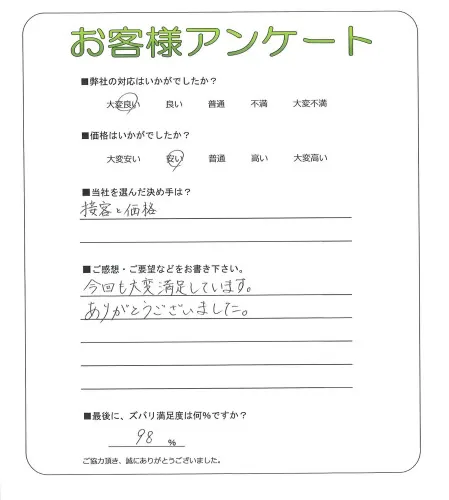 お客様アンケート
■弊社の対応はいかがでしたか？
大変良い 良い 普通 不満 大変不満
■価格はいかがでしたか？
大変安い 安い 普通 高い 大変高い
■当社を選んだ決め手は？
接客と価格
■ご感想・ご要望などをお書き下さい。
今回も大変満足しています。
ありがとうございました。
■最後に、ズバリ満足度は何%ですか？
98 %
ご協力頂き、誠にありがとうございました。